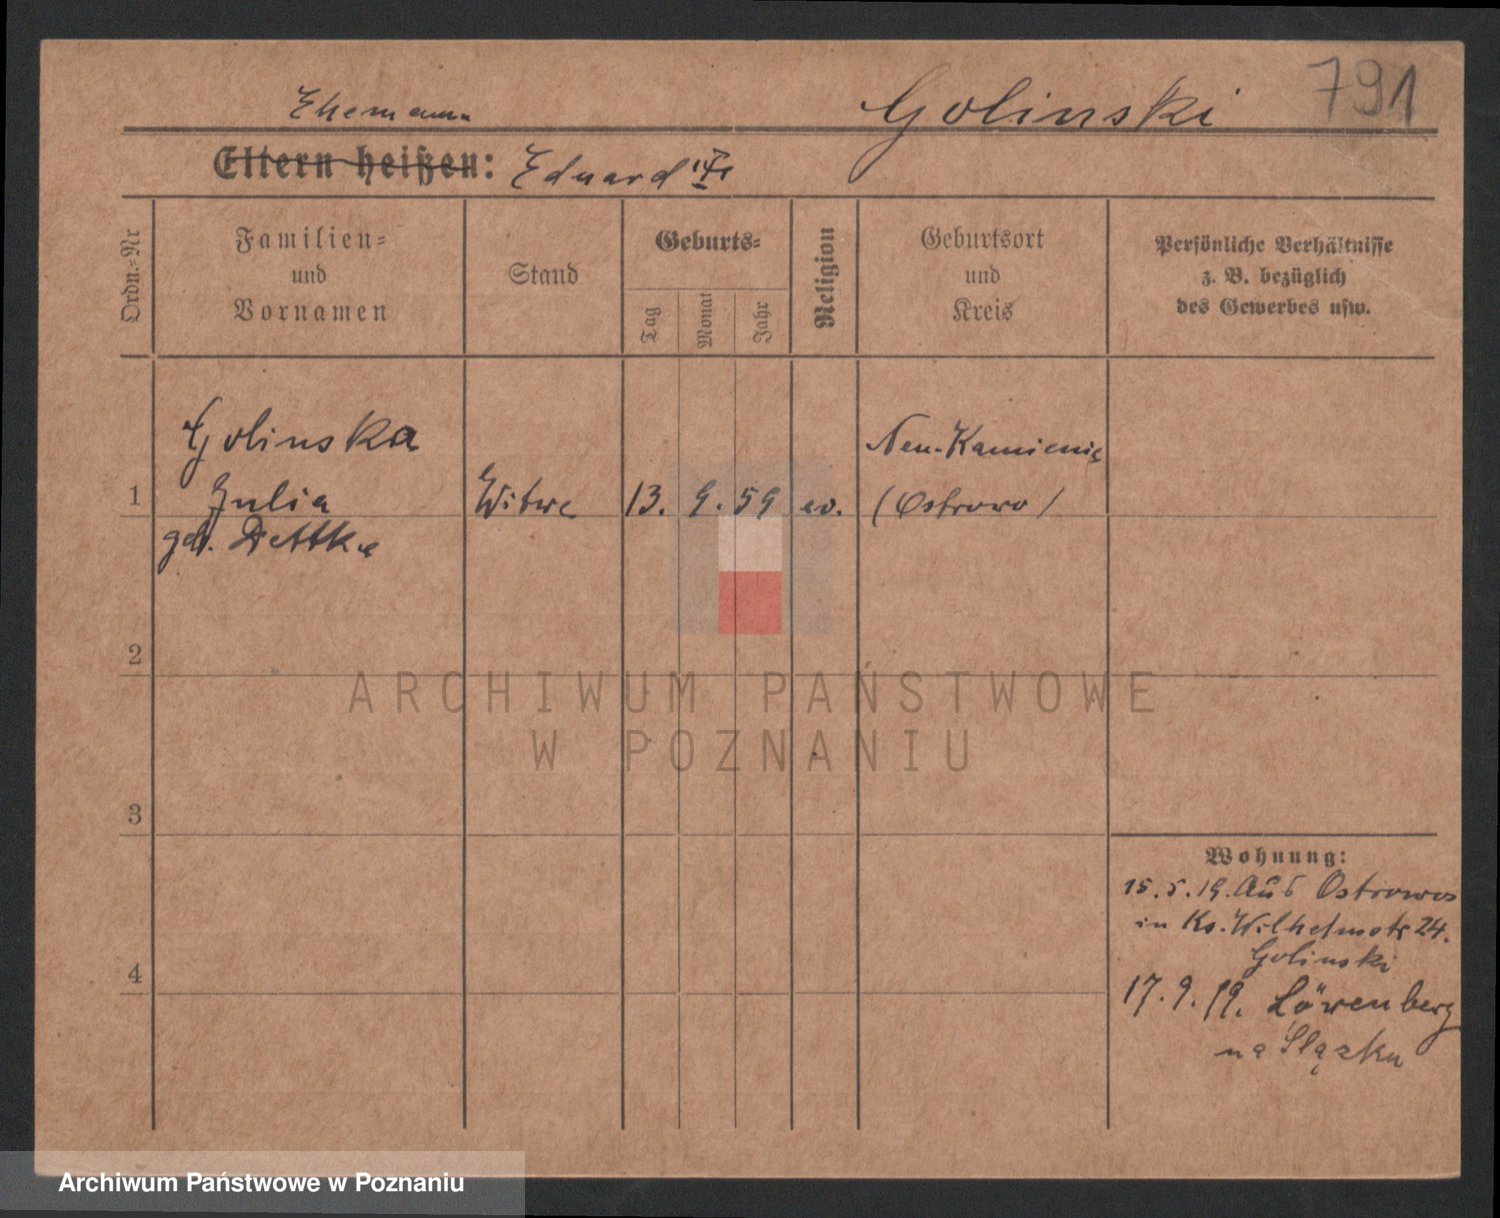 791
Ehemann Golinski
Eltern heißen: Eduard
Ordn.-Nr
Familien-
und
Vornamen
Stand
Geburts-
Tag
Monat
Jahr
Religion
Geburtsort
und
Kreis
Persönliche Verhältnisse
z. B. bezüglich
des Gewerbes usw.
Golinska
1 Julia Witwe 13. 9. 59 ev. Neu-Kamienic
geb. Dettke (Ostrowo)
2
ARCHIWUM PAŃSTWOWE
W POZNANIU
3
Wohnung:
15. 5. 19. Aus Ostrowo
in Ks. Wilhelmstr 24.
Golinski
4
17. 9. 19. Löwenberg
na Śląsku
Archiwum Państwowe w Poznaniu